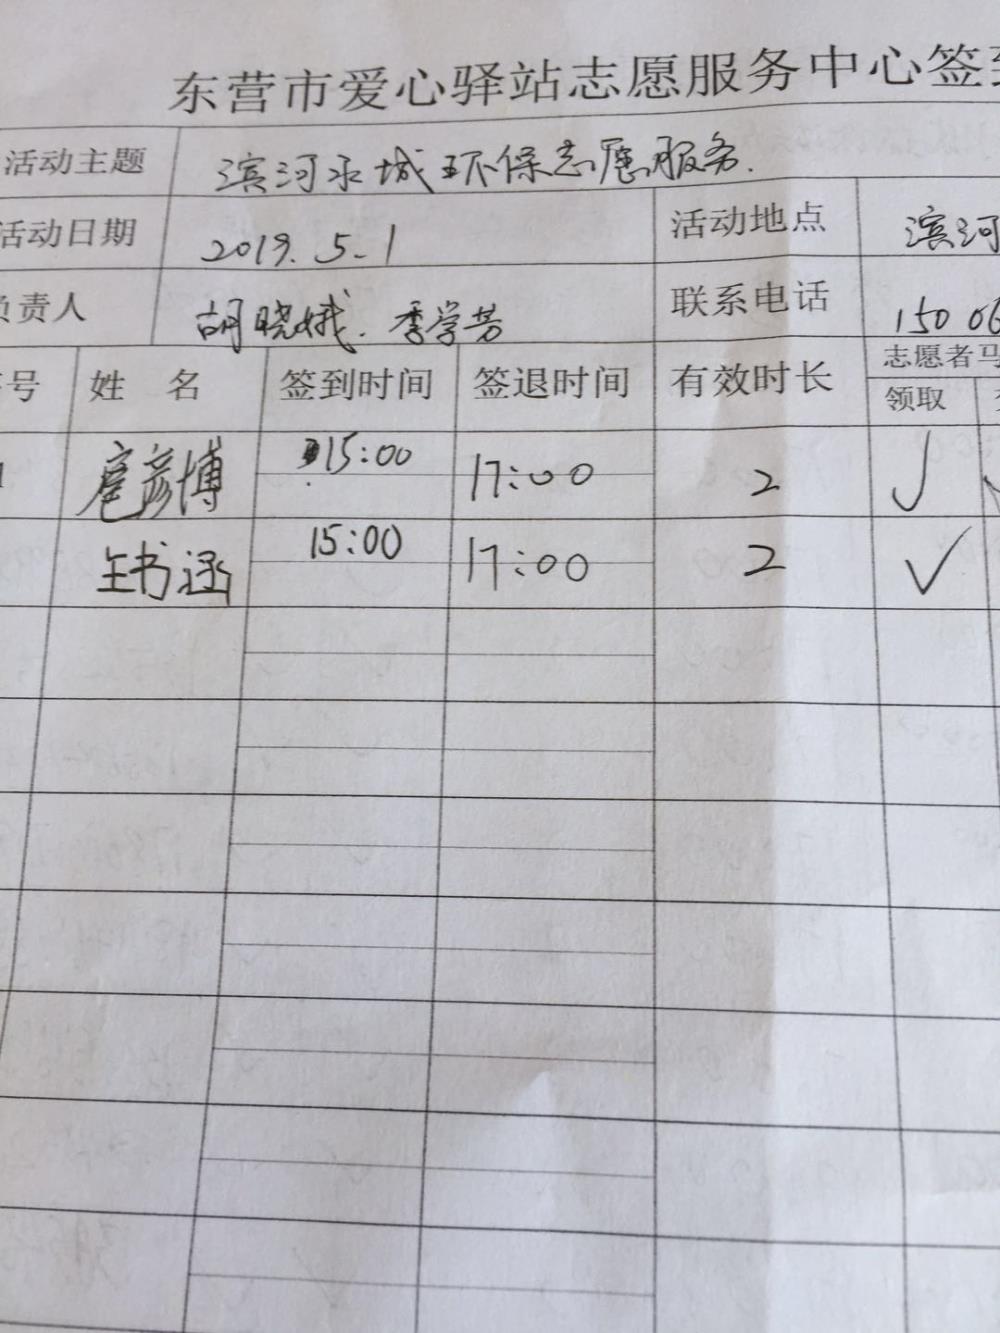 东营市爱心驿站志愿服务中心签到
活动主题 滨河水城环保志愿服务.
活动日期 2019.5.1 活动地点 滨河
负责人 胡晓娥.季学芳 联系电话 15006
序号 姓 名 签到时间 签退时间 有效时长 志愿者马
领取
1 扈彦博 15:00 17:00 2 ✓
王书涵 15:00 17:00 2 ✓